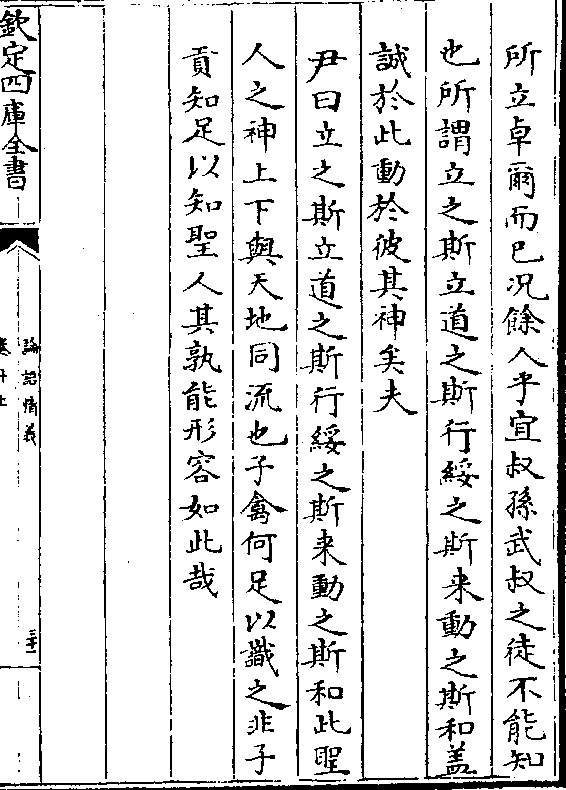 所立卓爾而已況餘人乎宜叔孫武叔之徒不能知
也所謂立之斯立道之斯行綏之斯来動之斯和盖
誠於此動於彼其神矣夫
尹曰立之斯立道之斯行綏之斯来動之斯和此聖
人之神上下與天地同流也子禽何足以識之非子
貢知足以知聖人其孰能形容如此哉
欽定四庫全書
論語精義